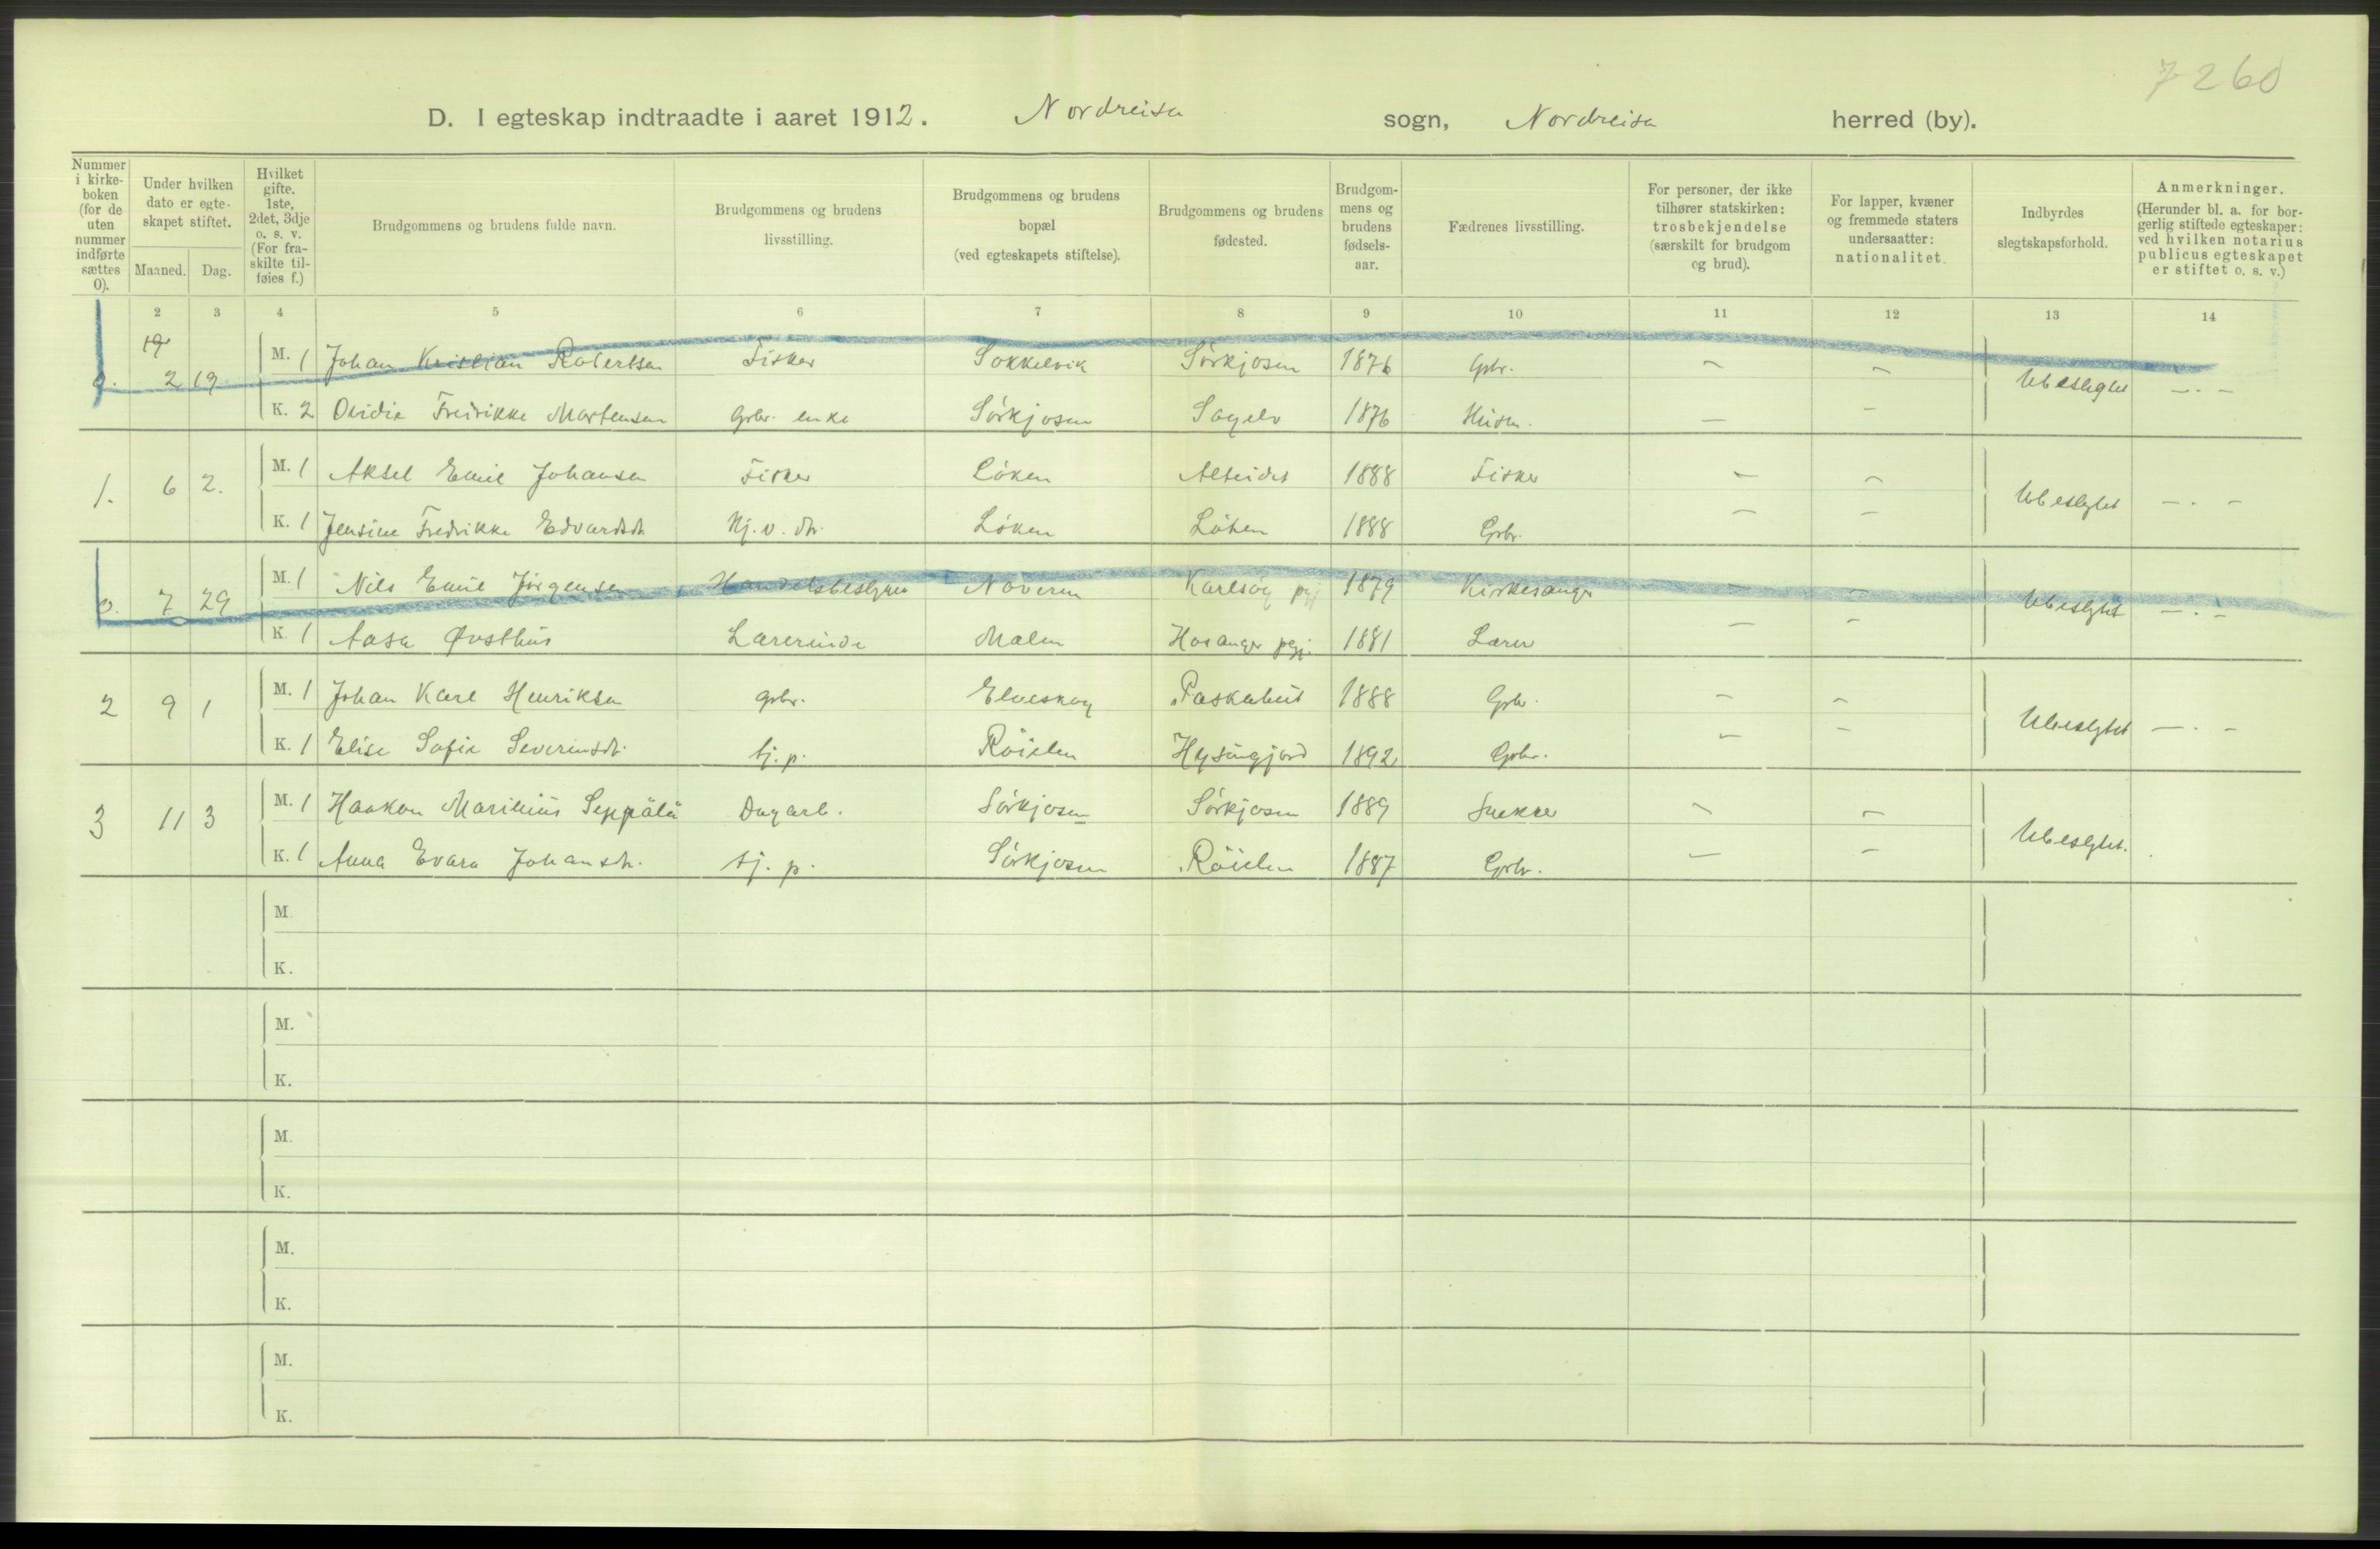 7260
D. I egteskap indtraadte i aaret 1912. Nordreisa sogn, Nordreisa herred (by).
Nummer i kirke-boken (for de uten nummer indførte sættes 0).
Under hvilken dato er egte-skapet stiftet.
Maaned. Dag.
Hvilket gifte. 1ste, 2det, 3dje o. s. v. (For fra-skilte til-føies f.)
Brudgommens og brudens fulde navn.
Brudgommens og brudens livsstilling.
Brudgommens og brudens bopæl (ved egteskapets stiftelse).
Brudgommens og brudens fødested.
Brudgom-mens og brudens fødsels-aar.
Fædrenes livsstilling.
For personer, der ikke tilhører statskirken: trosbekjendelse (særskilt for brudgom og brud).
For lapper, kvæner og fremmede staters undersaatter: nationalitet.
Indbyrdes slegtskapsforhold.
Anmerkninger. (Herunder bl. a. for bor-gerlig stiftede egteskaper: ved hvilken notarius publicus egteskapet er stiftet o. s. v.)
2 3 4 5 6 7 8 9 10 11 12 13 14
19
0. 2 19 M. 1 Johan Kristian Robertsen Fisker Sokkelvik Sörkjosen 1876 Gbr. — — Ubeslegtet — . —
K. 2 Ovidie Fredrikke Mortensen Gbr. enke Sörkjosen Sagelv 1876 Husm. — —
1. 6 2. M. 1 Aksel Emil Johansen Fisker Löken Alteidet 1888 Fisker — — Ubeslgtet — . —
K. 1 Jensine Fredrikke Edvardsdt. Hj. v. dtr. Löken Löken 1888 Gbr. — —
0. 7 29 M. 1 Nils Emil Jörgensen Handelsbestyrer Naveren Karlsöy pgj 1879 Kirkesanger — — Ubeslgtet — . —
K. 1 Aasa Øvsthus Lærerinde Malen Hosanger pgj. 1881 Lærer — —
2 9 1 M. 1 Johan Karl Henriksen gbr. Elveskog Paskaheit 1888 Gbr. — — Ubeslgtet — . —
K. 1 Elise Sofie Severinsdt. tj. p. Röielen Hysingjord 1892 Gbr. — —
3 11 3 M. 1 Haakon Marinius Seppälä Dagarb. Sörkjosen Sörkjosen 1889 Snekker — — Ubeslgtet.
K. 1 Anna Evara Johansdt. tj. p. Sörkjosen Röielen 1887 Gbr. — —
M.
K.
M.
K.
M.
K.
M.
K.
M.
K.